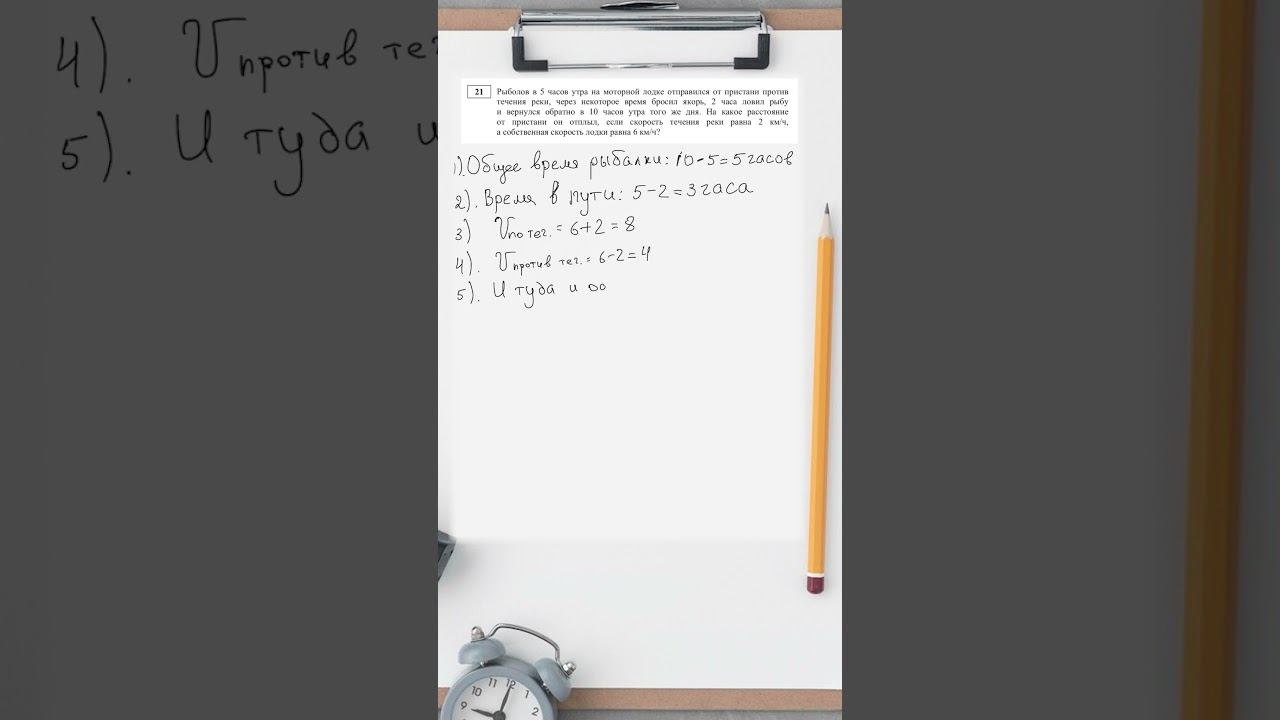 4). Vпротив тег
5). И туда и
21 Рыболов в 5 часов утра на моторной лодке отправился от пристани против
течения реки, через некоторое время бросил якорь, 2 часа ловил рыбу
и вернулся обратно в 10 часов утра того же дня. На какое расстояние
от пристани он отплыл, если скорость течения реки равна 2 км/ч,
а собственная скорость лодки равна 6 км/ч?
1). Общее время рыбалки: 10-5=5 часов
2). Время в пути: 5-2=3 часа
3) Vпо теч. = 6+2=8
4). Vпротив теч. = 6-2=4
5). И туда и оо
9 10 11 12 1 2 3